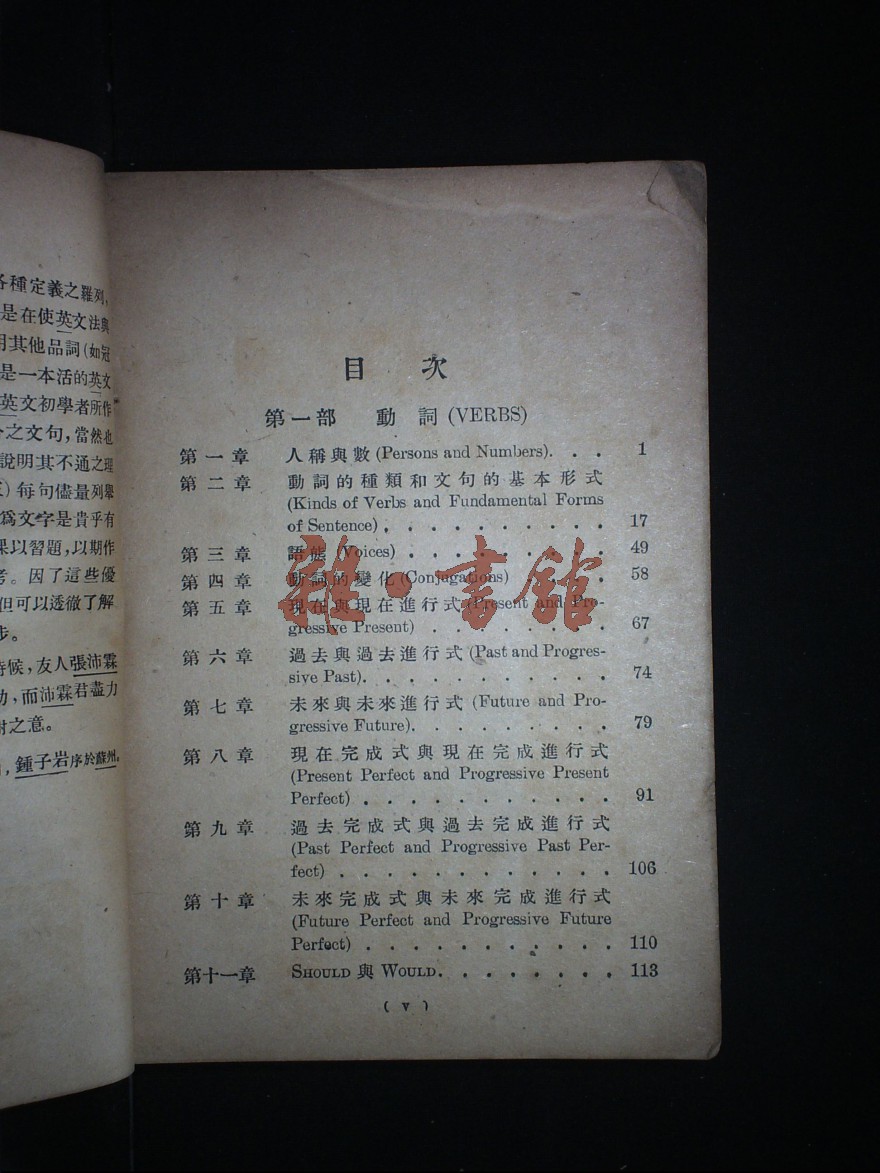 各種定義之羅列,
是在使英文法與
用其他品詞(如冠
是一本活的英文
英文初學者所作
之文句,當然也
說明其不通之理
)每句儘量列舉
爲文字是貴乎有
課以習題,以期作
考。因了這些優
但可以透徹了解
步。
時候,友人張沛霖
功,而沛霖君盡力
謝之意。
鍾子岩序於蘇州。
目 次
第一部 動詞 (VERBS)
第一章 人稱與數 (Persons and Numbers). . . 1
第二章 動詞的種類和文句的基本形式
(Kinds of Verbs and Fundamental Forms
of Sentence) . . . . . . . . . . 17
第三章 語態 (Voices) . . . . . . . . . 49
第四章 動詞的變化 (Conjugations) . . . . . 58
第五章 現在與現在進行式 (Present and Pro-
gressive Present) . . . . . . . . 67
第六章 過去與過去進行式 (Past and Progres-
sive Past). . . . . . . . . . . 74
第七章 未來與未來進行式 (Future and Pro-
gressive Future). . . . . . . . . 79
第八章 現在完成式與現在完成進行式
(Present Perfect and Progressive Present
Perfect) . . . . . . . . . . . 91
第九章 過去完成式與過去完成進行式
(Past Perfect and Progressive Past Per-
fect) . . . . . . . . . . . . 106
第十章 未來完成式與未來完成進行式
(Future Perfect and Progressive Future
Perfect) . . . . . . . . . . . 110
第十一章 SHOULD 與 WOULD. . . . . . . . 113
( v )
雜·書館